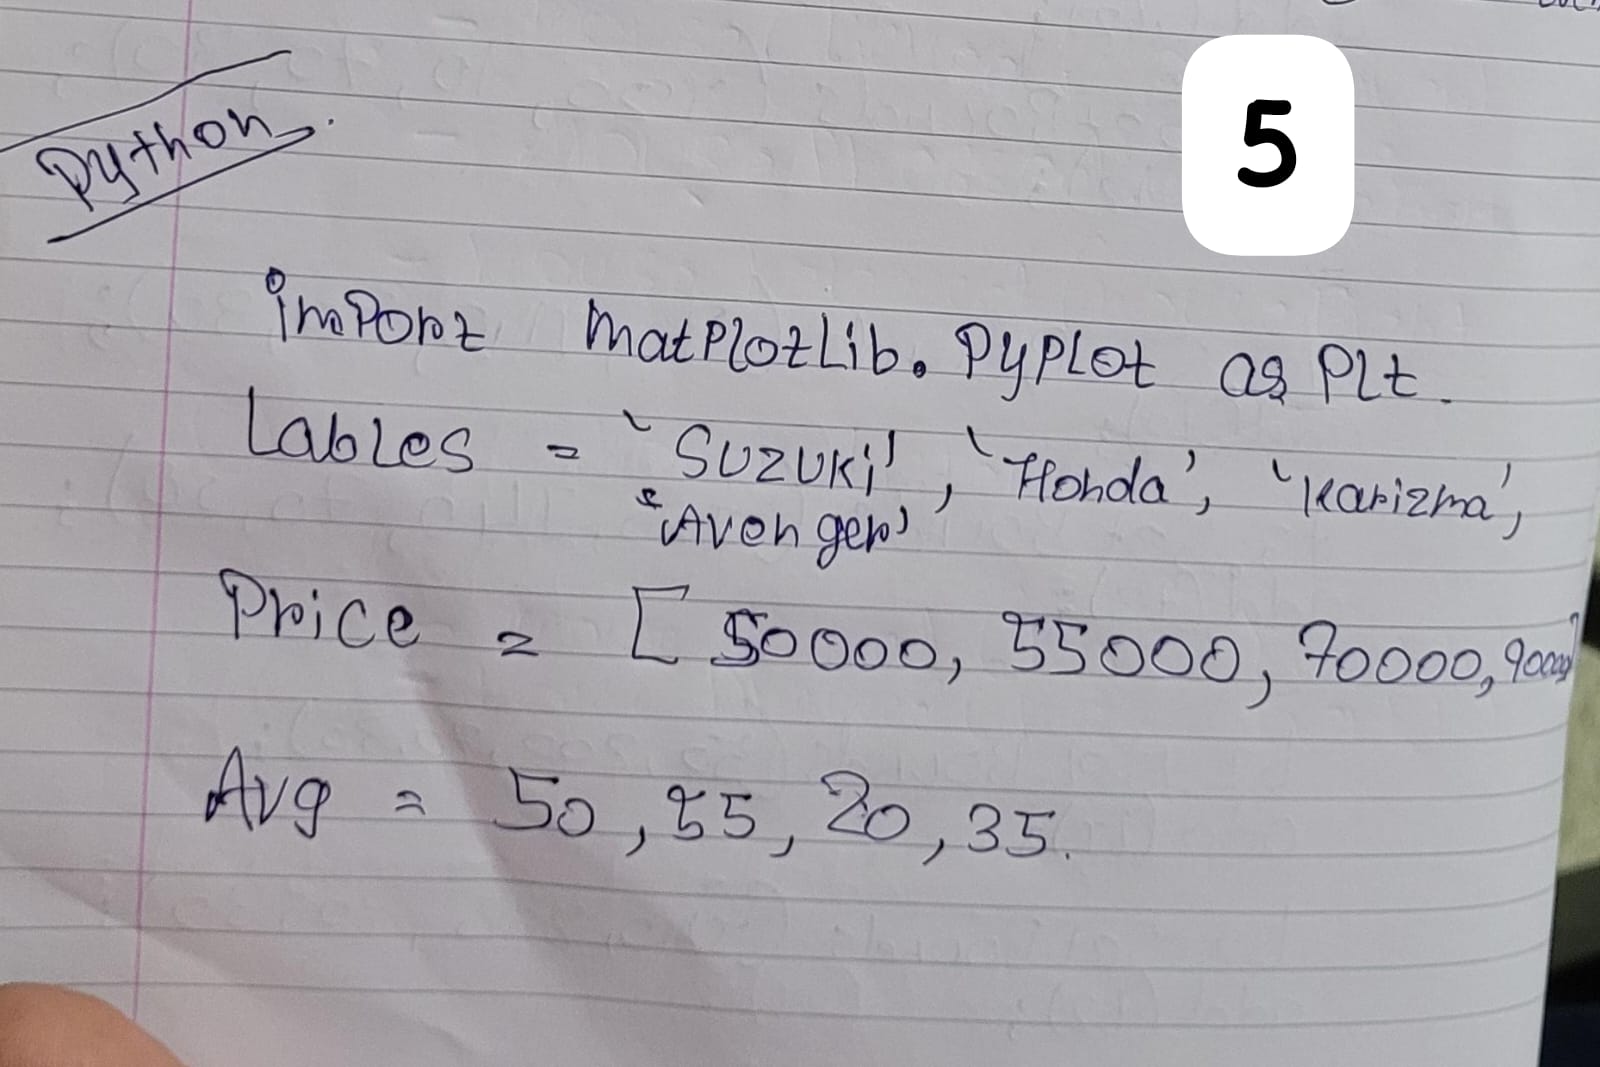 Python.
5
import matplotlib.pyplot as plt.
Lables = 'Suzuki', 'Honda', 'Karizma',
'Avenger'
Price = [50000, 55000, 70000, 90000]
Avg = 50, 55, 20, 35.